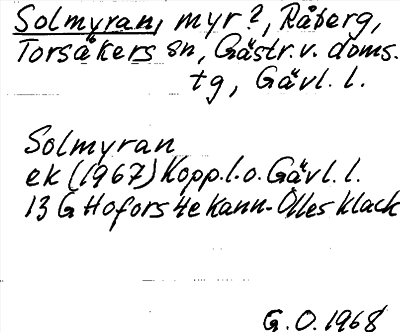 Solmyran, myr?, Råberg,
Torsåkers sn, Gästr. v. doms.
tg, Gävl. l.
Solmyran
ek (1967) Kopp. l. o. Gävl. l.
13 G Hofors 4e Kann-Olles klack
G. O. 1968